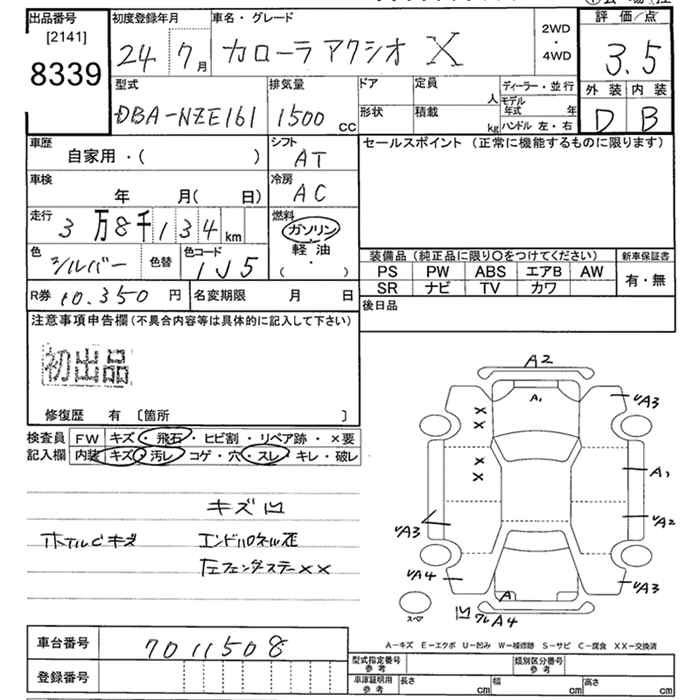 出品番号
[2141]
8339
初度登録年月
24 7月
車名・グレード
カローラ アクシオ X
2WD
・
4WD
評価/点
3.5
外装 内装
D B
型式
DBA-NZE161
排気量
1500 cc
ドア
形状
定員 人
積載 kg
ディーラー・並行
モデル年式 年
ハンドル 左・右
車歴
自家用・( )
シフト
AT
セールスポイント (正常に機能するものに限ります)
車検
年 月( 日)
冷房
AC
走行
3万8千134 km
燃料
ガソリン
軽油
( ・ )
色
シルバー
色替
色コード
1J5
装備品 (純正品に限り〇をつけてください)
新車保証書
PS PW ABS エアB AW
SR ナビ TV カワ
有・無
R券 10.350 円
名変期限 月 日
後日品
注意事項申告欄(不具合内容等は具体的に記入して下さい)
初出品
修復歴 有 〔箇所 〕
検査員 FW キズ・飛石・ヒビ割・リペア跡・×要
記入欄 内装 キズ・汚レ・コゲ・穴・スレ・キレ・破レ
キズ凹
ホイルCキズ
エンドパネル歪
左フェンダステー××
A2
A1
UA3
××
××
A1
UA2
UA3
UA4
UA3
A
A4
スペア
A-キズ E-エクボ U-凹み W-補修跡 S-サビ C-腐食 XX-交換済
車台番号
7011508
登録番号
型式指定番号
参考
類別区分番号
参考
車庫証明用
参考
長さ cm
幅 cm
高さ cm